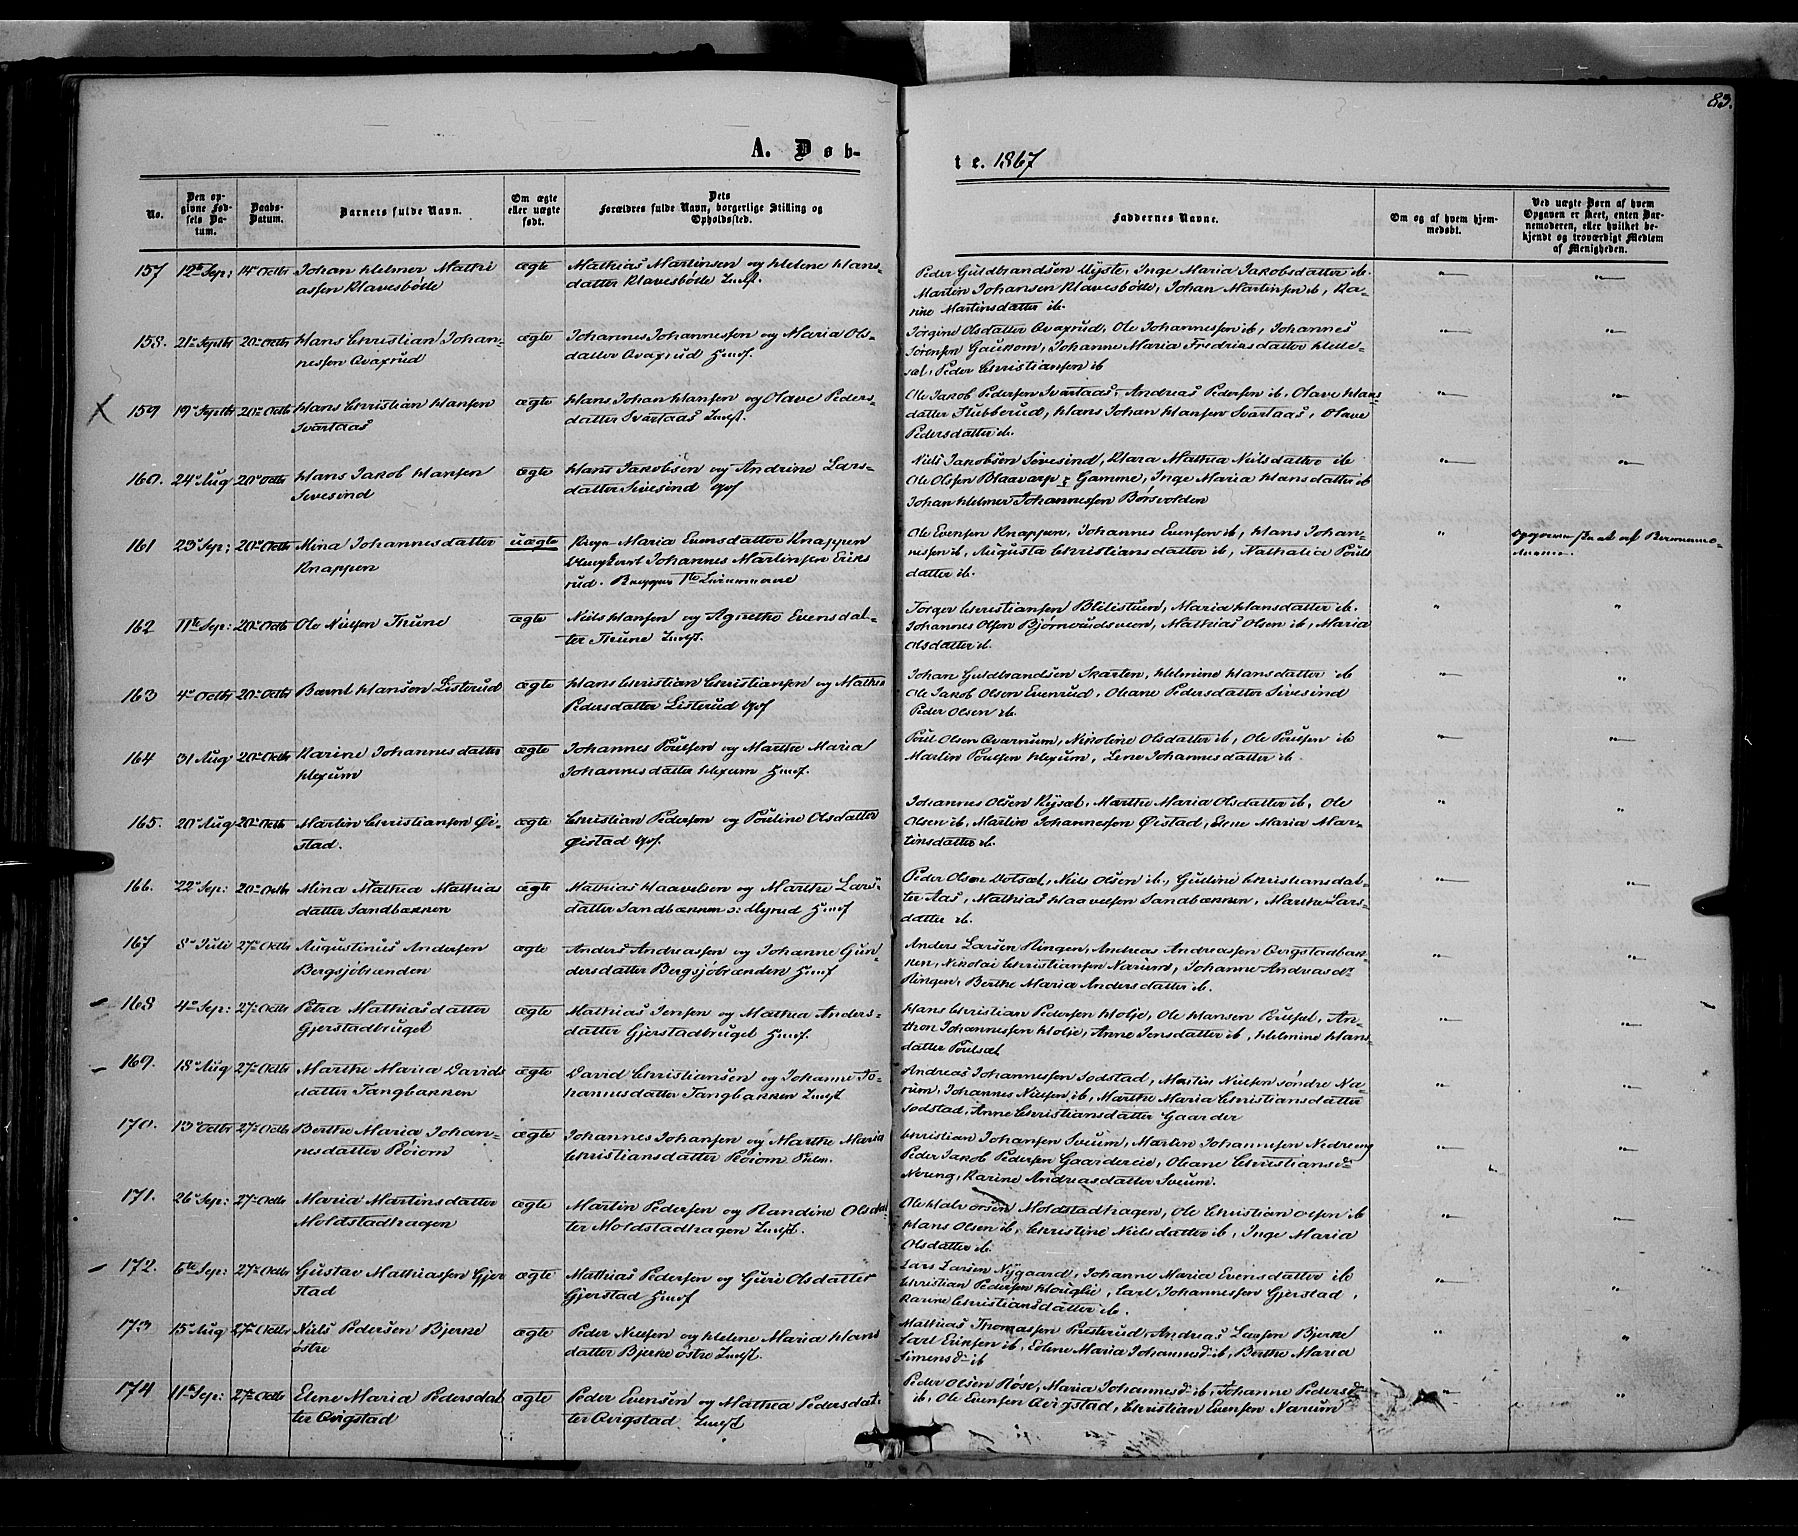 83.
A. Døb-
te. 1867
No.
Den op-
givne Fød-
sels Da-
tum.
Daabs-
Datum.
Barnets fulde Navn.
Om ægte
eller uægte
født.
Dets
Forældres fulde Navn, borgerlige Stilling og
Opholdssted.
Faddernes Navne.
Om og af hvem hjem-
medøbt.
Ved uægte Børn af hvem
Opgaven er skeet, enten Bar-
nemoderen, eller hvilket be-
kjendt og troværdigt Medlem
af Menigheden.
157 12te Sep: 14de Octbr Johan Helmer Mathi
assen Klavesbøle
ægte
Mathias Martinsen og Helene Hans-
datter Klavesbøle
Peder Guldbrandsen Nyste, Inge Maria Jakobsdatter ib.
Martin Johansen Klavesbøle, Johan Martinsen ib, Ka-
rine Martinsdatter ib.
158. 21de Septbr 20de Octbr Hans Christian Johan-
nessen Qvaxrud
ægte
Johannes Johannessen og Maria Ols-
datter Qvaxrud
Jorgine Olsdatter Qvaxrud, Ole Johannessen ib, Johannes
Sørensen Gaukom, Johanne Maria Fredriksdatter Helle-
sæt, Peder Christiansen ib
159 19de Septbr 20de Octb Hans Christian Hansen
Svartaas
ægte
Hans Johan Hansen og Olave Peders-
datter Svartaas
Ole Jakob Pedersen Svartaas, Andreas Pedersen ib, Olave Hans-
datter Stubberud, Hans Johan Hansen Svartaas, Olave
Pedersdatter ib.
160. 24de Aug 20de Octbr Hans Jakob Hansen
Sivesind
ægte
Hans Jakobsen og Andrine Lars-
datter Sivesind
Niels Jakobsen Sivesind, Klara Mathea Nielsdatter ib
Ole Olsen Blaavarp Gamme, Inge Maria Hansdatter ib
Johan Helmer Johannessen Børsvolden
161 23de Sep: 20de Octbr Mina Johannesdatter
Knappen
uægte
Maria Evensdatter Knappen
Johannes Martinsen Eriks
rud.
Ole Evensen Knappen, Johannes Evensen ib, Hans Johan-
nessen ib, Augusta Christiansdatter ib, Nathalia Pouls
datter ib.
162 11te Sep: 20de Octbr Ole Nielsen Thune
ægte
Niels Hansen og Agnethe Evensdat-
ter Thune
Torger Christiansen Blilistuen, Maria Hansdatter ib.
Johannes Olsen Bjørnerudsveen, Mathias Olsen ib, Maria
Olsdatter ib.
163 4de Octbr 20de Octbr Bernt Hansen Listerud
ægte
Hans Christian Christiansen og Mathea
Pedersdatter Listerud
Johan Guldbrandsen Skarten, Helmine Hansdatter ib
Ole Jakob Olsen Evenrud, Oleane Pedersdatter Sivesind
Peder Olsen ib.
164 31 Aug 20de Octbr Karine Johannesdatter
Hexum
ægte
Johannes Poulsen og Marthe Maria
Johannesdatter Hexum
Poul Olsen Qvarnum, Nikoline Olsdatter ib, Ole Poulsen ib
Martin Poulsen Hexum, Lene Johannesdatter ib.
165. 20de Aug 20de Octbr Martin Christiansen Øi-
stad.
ægte
Christian Pedersen og Pouline Olsdatter
Øistad
Johannes Olsen Rysæt, Marthe Maria Olsdatter ib, Ole
Olsen ib, Martin Johannessen Øistad, Elene Maria Mar-
tinsdatter ib.
166. 22de Sep: 20de Octbr Mina Mathea Mathias
datter Sandbækken
ægte
Mathias Haavelsen og Marthe Lars-
datter Sandbækken
Peder Olsen Dotsæt, Niels Olsen ib, Guline Christiansdat-
ter Aas, Mathias Haavelsen Sandbækken, Marthe Lars-
datter ib.
167 8de Juli 27de Octbr Augustinus Andersen
Bergsjøbænden
ægte
Anders Andreassen og Johanne Gun-
dersdatter Bergsjøbænden
Anders Larsen Ringen, Andreas Andreassen Qvigstadbak-
ken, Nikolai Christiansen Narum, Johanne Andreasdr
Ringen, Berthe Maria Andersdatter ib.
168 4de Sep: 27de Octbr Petra Mathiasdatter
Gjerstadbruget
ægte
Mathias Jensen og Mathea Anders-
datter Gjerstadbruget
Hans Christian Pedersen Holje, Ole Hansen Poulsæt, An-
thon Johannessen Holje, Anne Jensdatter ib, Helmine Hans-
datter Poulsæt
169. 18de Aug 27de Octbr Marthe Maria Davids
datter Tangbakken
ægte
David Christiansen og Johanne Jo-
hannesdatter Tangbakken
Andreas Johannessen Sodstad, Martin Nielsen søndre Na-
rum, Johannes Nielsen ib, Marthe Maria Christiansdatter
Sodstad, Anne Christiansdatter Gaarder
170. 13de Octbr 27de Octbr Berthe Maria Johan-
nesdatter Røiom
ægte
Johannes Johansen og Marthe Maria
Christiansdatter Røiom
Christian Johansen Sveum, Martin Johannessen Nedreng
Peder Jakob Pedersen Gaardereie, Oleane Christiansdr
Nereng, Karine Andreasdatter Sveum.
171. 26de Sep: 27de Octbr Maria Martinsdatter
Moldstadhagen
ægte
Martin Pedersen og Randine Olsdat
ter Moldstadhagen
Ole Halvorsen Moldstadhagen, Ole Christian Olsen ib
Hans Olsen ib, Christine Nielsdatter ib, Inge Maria
Olsdatter ib.
172. 6te Sep: 27de Octbr Gustav Mathiassen Gjer
stad
ægte
Mathias Pedersen og Guri Olsdatter
Gjerstad
Lars Larsen Nygaard, Johanne Maria Evensdatter ib
Christian Pedersen Houglie, Carl Johannessen Gjerstad,
Karine Christiansdatter ib.
173 15de Aug 27de Octbr Niels Pedersen Bjerke
østre
ægte
Peder Nielsen og Helene Maria Hans
datter Bjerke østre
Mathias Thomassen Presterud, Andreas Larsen Bjerke
Carl Eriksen ib, Edene Maria Johannesdr ib, Berthe Maria
Simensdr ib
174 11te Sep: 27de Octbr Elene Maria Pedersdat
ter Qvigstad
ægte
Peder Evensen og Mathea Pedersdat
ter Qvigstad
Peder Olsen Røse, Maria Johannesdr ib, Johanne Pedersdr
ib, Ole Evensen Qvigstad, Christian Evensen Narum